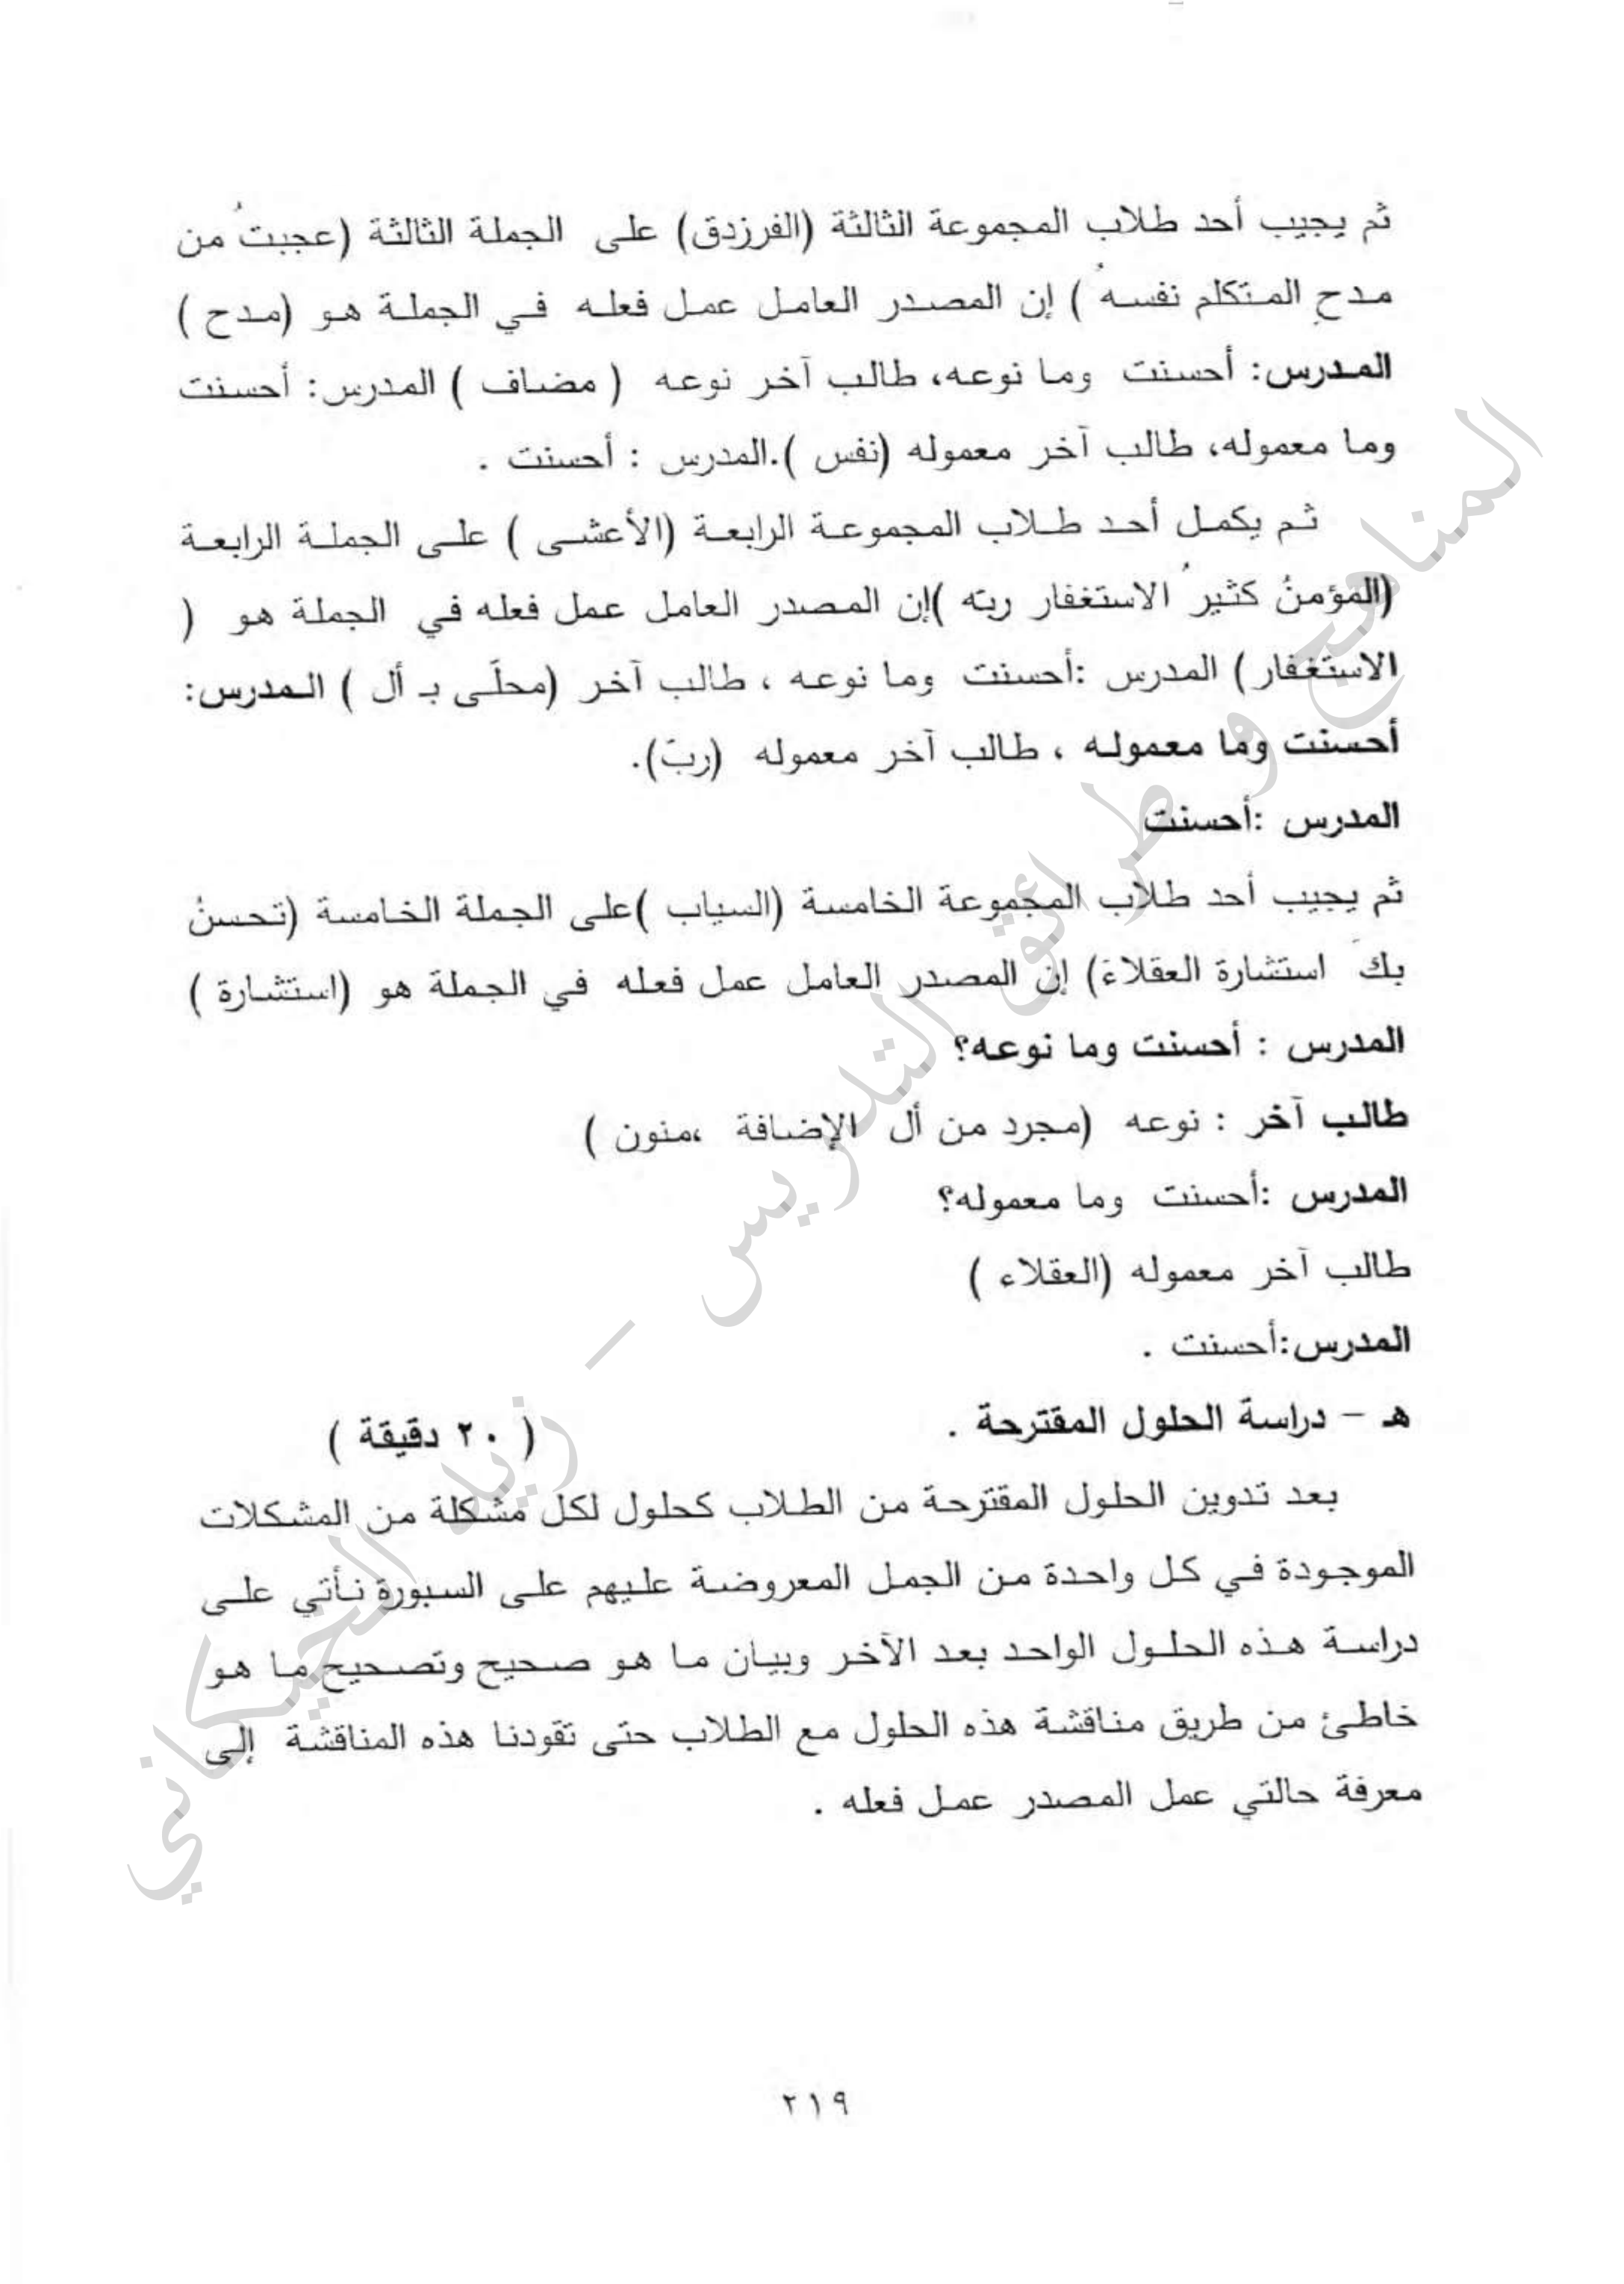 ثم يجيب أحد طلاب المجموعة الثالثة (الفرزدق) على الجملة الثالثة (عجبتُ من
مدحِ المتكلم نفسهُ ) إن المصدر العامل عمل فعله في الجملة هو (مدح )
المدرس: أحسنت وما نوعه، طالب آخر نوعه ( مضاف ) المدرس: أحسنت
وما معموله، طالب آخر معموله (نفس ).المدرس : أحسنت .
ثم يكمل أحد طلاب المجموعة الرابعة (الأعشى ) على الجملة الرابعة
(المؤمنُ كثيرُ الاستغفار ربّه )إن المصدر العامل عمل فعله في الجملة هو (
الاستغفار ) المدرس :أحسنت وما نوعه ، طالب آخر (محلّى بـ أل ) المدرس:
أحسنت وما معموله ، طالب آخر معموله (ربّ).
المدرس :أحسنت
ثم يجيب أحد طلاب المجموعة الخامسة (السياب )على الجملة الخامسة (تحسنُ
بكَ استشارة العقلاءَ) إن المصدر العامل عمل فعله في الجملة هو (استشارة )
المدرس : أحسنت وما نوعه؟
طالب آخر : نوعه (مجرد من أل الإضافة ،منون )
المدرس :أحسنت وما معموله؟
طالب آخر معموله (العقلاء )
المدرس:أحسنت .
هـ – دراسة الحلول المقترحة . ( ٢٠ دقيقة )
بعد تدوين الحلول المقترحة من الطلاب كحلول لكل مشكلة من المشكلات
الموجودة في كل واحدة من الجمل المعروضة عليهم على السبورة نأتي على
دراسة هذه الحلول الواحد بعد الآخر وبيان ما هو صحيح وتصحيح ما هو
خاطئ من طريق مناقشة هذه الحلول مع الطلاب حتى تقودنا هذه المناقشة إلى
معرفة حالتي عمل المصدر عمل فعله .
٢١٩
المناهج و طرائق التدريس – زيد الخيكاني